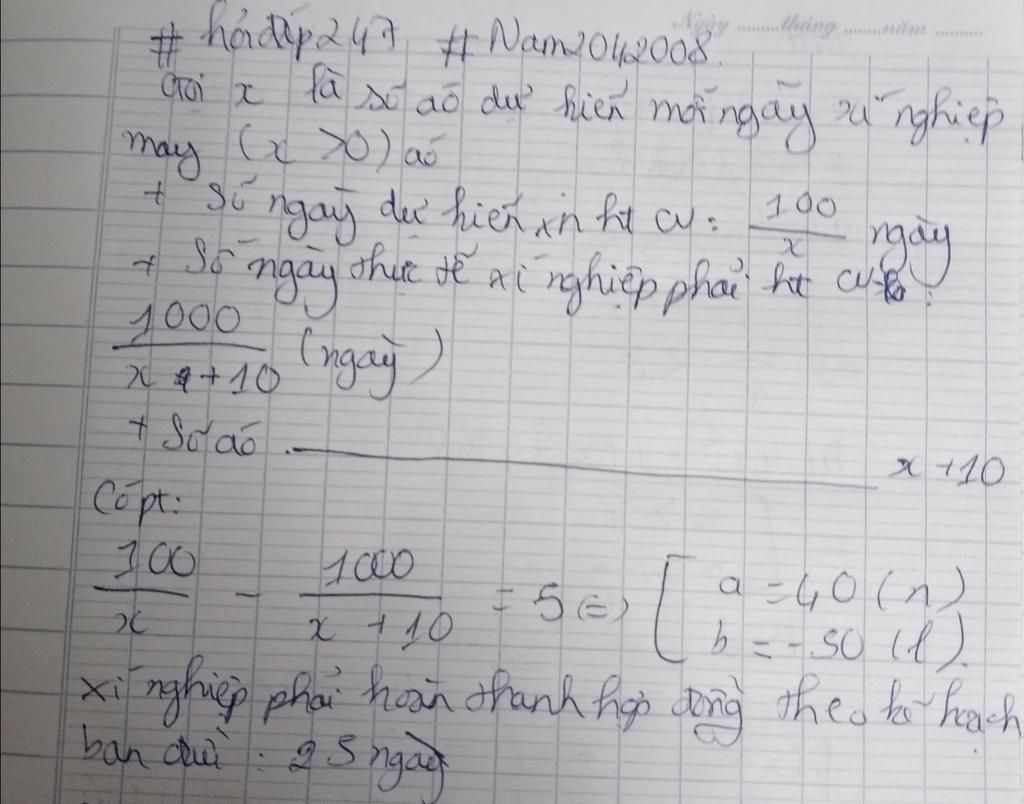 Ngày ........ tháng ........ năm ........
# hỏiđáp247 # Nam2042008.
Gọi x là số áo dự kiến mỗi ngày xí nghiệp
may (x >0) áo
+ Số ngày dự kiến xn ht cv: 100/x ngày
+ Số ngày thực tế xí nghiệp phải ht cv :
1000/(x +10) (ngày)
+ Số áo ________ x +10
Có pt:
100/x - 1000/(x +10) = 5 (=) [ a =40 (n)
b =-50 (l).
xí nghiệp phải hoàn thành hợp đồng theo kế hoạch
ban đầu : 25 ngày